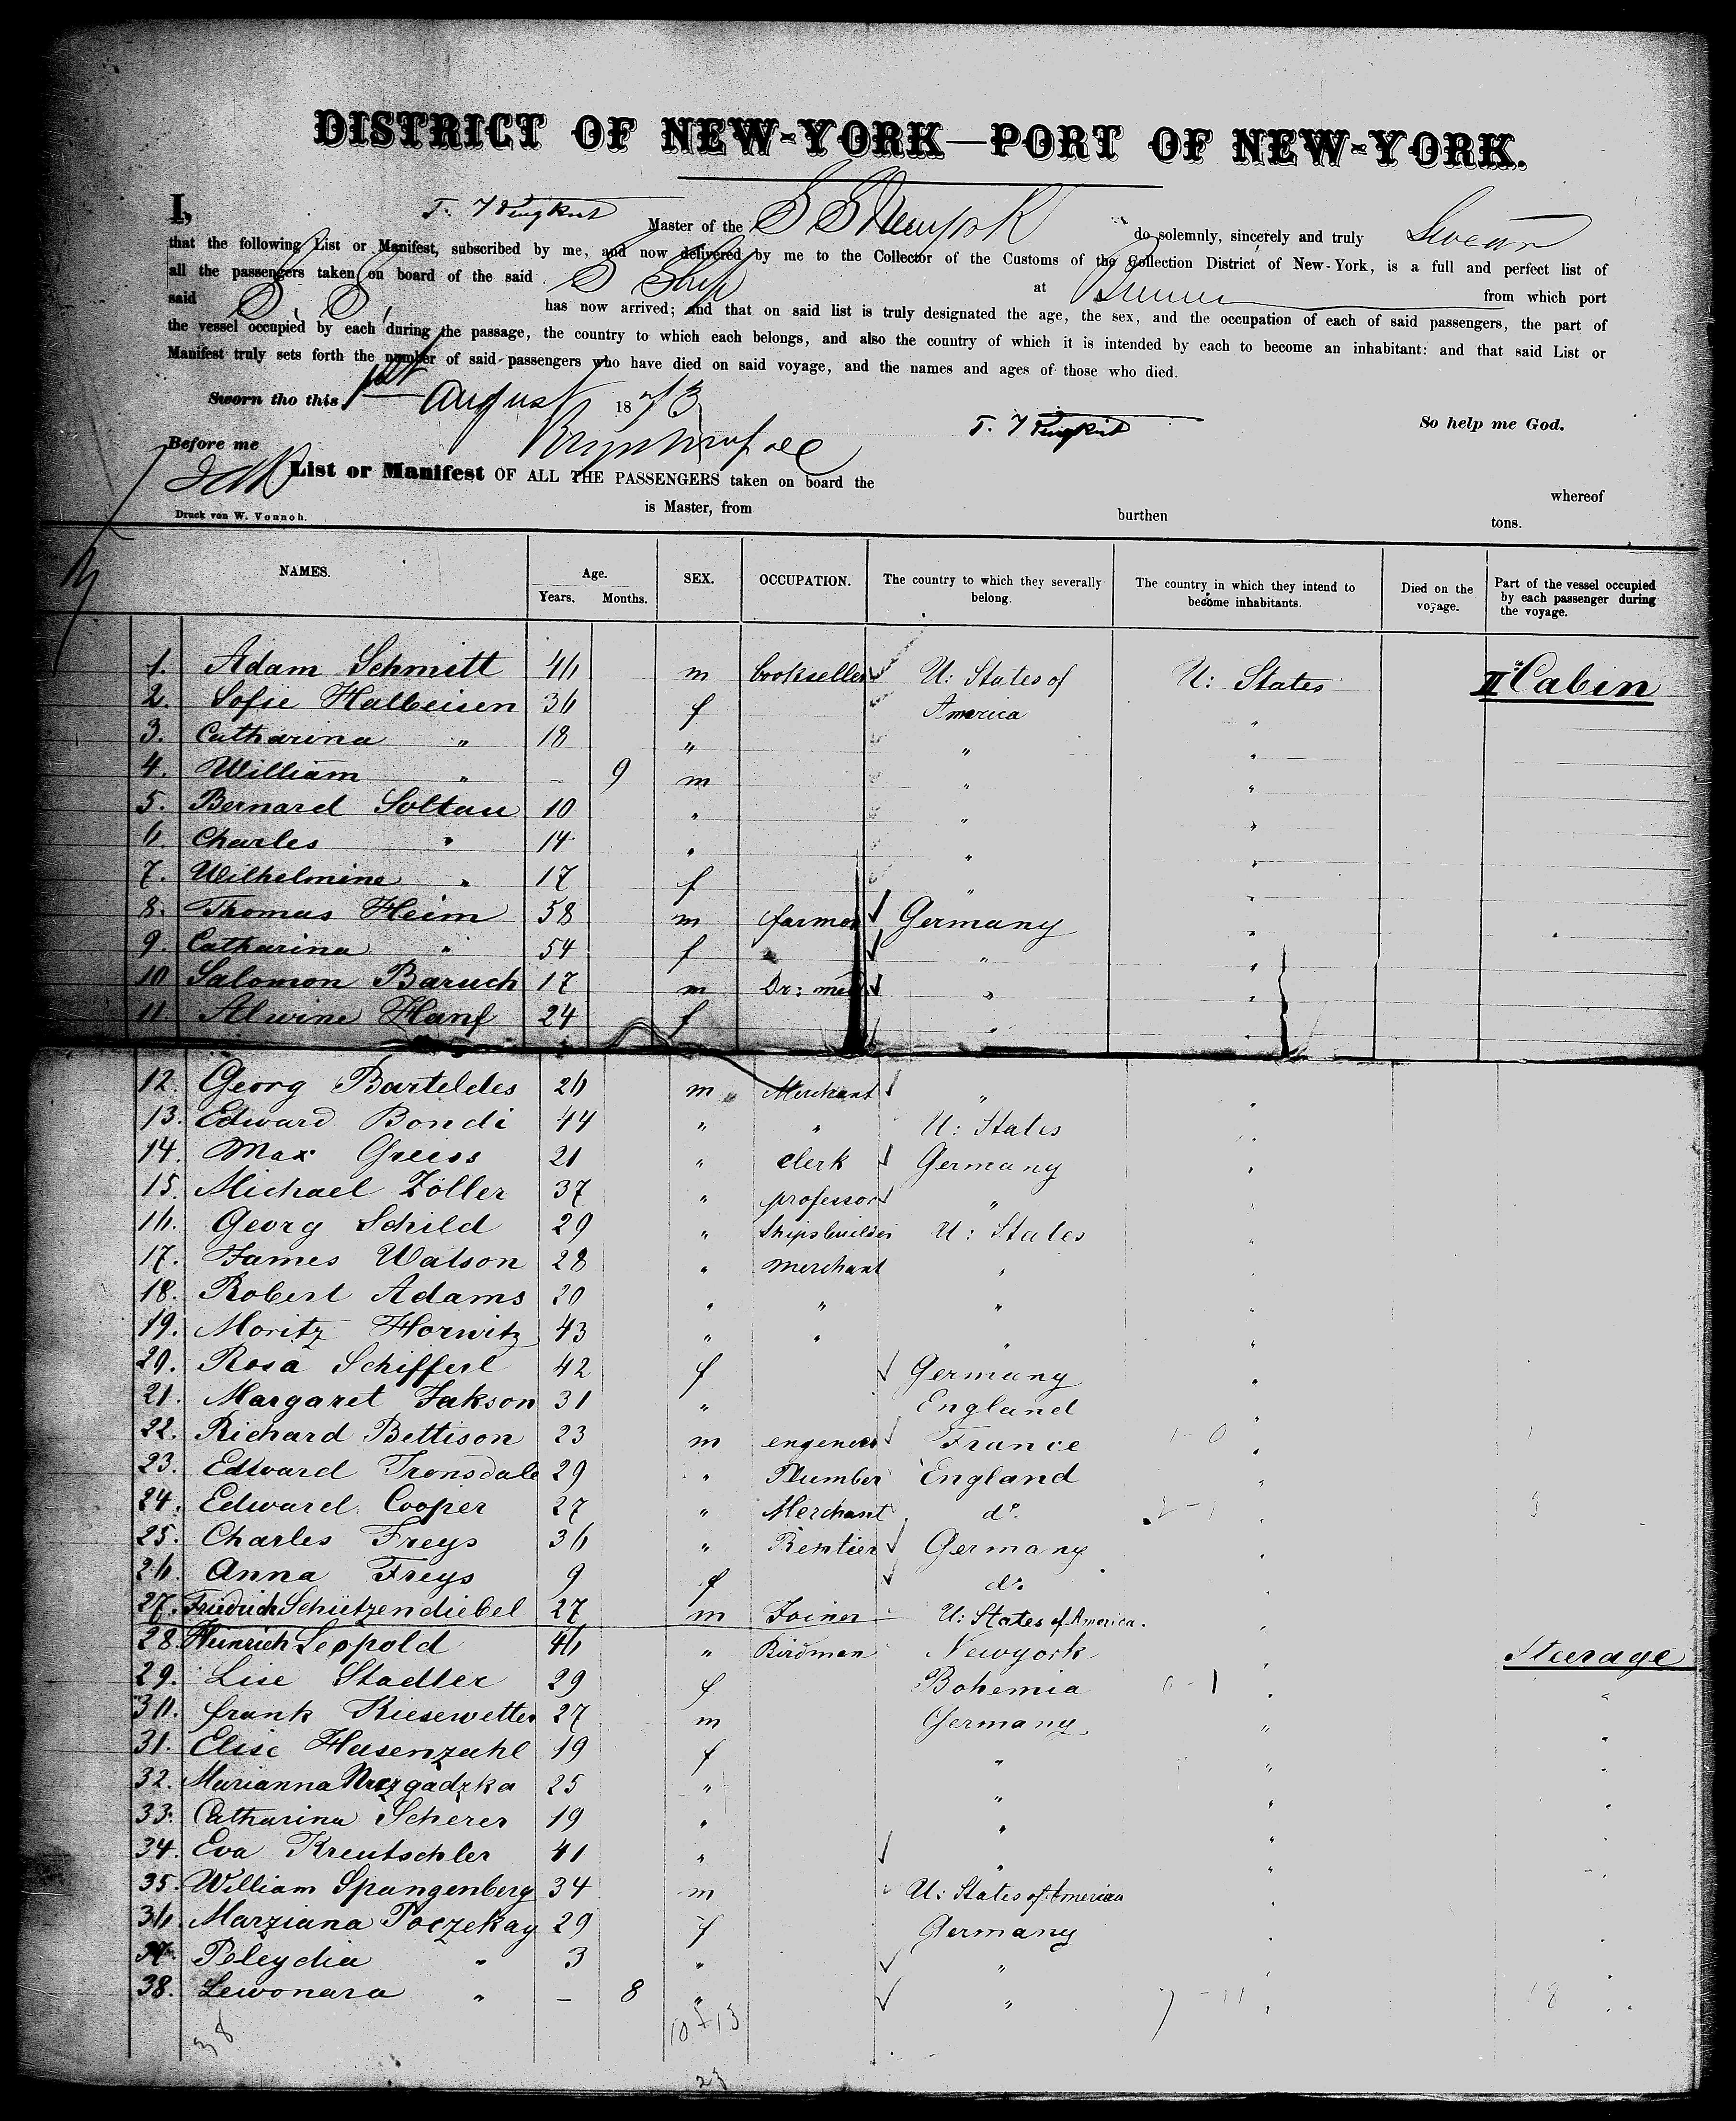 DISTRICT OF NEW-YORK—PORT OF NEW-YORK.
I, Master of the do solemnly, sincerely and truly Swear
that the following List or Manifest, subscribed by me, and now delivered by me to the Collector of the Customs of the Collection District of New-York, is a full and perfect list of
all the passengers taken on board of the said S Ship at Bremen from which port
said S. S. has now arrived; and that on said list is truly designated the age, the sex, and the occupation of each of said passengers, the part of
the vessel occupied by each during the passage, the country to which each belongs, and also the country of which it is intended by each to become an inhabitant: and that said List or
Manifest truly sets forth the number of said passengers who have died on said voyage, and the names and ages of those who died.
Sworn tho this 1st August 1873
So help me God.
Before me
List or Manifest OF ALL THE PASSENGERS taken on board the whereof
is Master, from burthen tons.
Druck von W. Vonnoh.
NAMES. Age. Years. Months. SEX. OCCUPATION. The country to which they severally belong. The country in which they intend to become inhabitants. Died on the voyage. Part of the vessel occupied by each passenger during the voyage.
1. Adam Schmitt 46 m bookseller U: States of U: States II Cabin
2. Sofie Halbeisen 36 f America "
3. Catharina " 18 " " "
4. William " – 9 m " "
5. Bernard Soltau 10 " " "
6 Charles " 14 " " "
7. Wilhelmine " 17 f " "
8. Thomas Heim 58 m farmer Germany "
9. Catharina " 54 f " "
10 Salomon Baruch 17 m Dr: med " "
11 Alwine Hanf 24 f " "
12. Georg Barteldes 26 m Merchant " "
13. Edward Bondi 44 " " U: States "
14. Max Greiss 21 " clerk Germany "
15. Michael Zöller 37 " professor " "
16. Georg Schild 29 " Shipsbuilder U: States "
17. James Watson 28 " merchant " "
18. Robert Adams 20 " " " "
19. Moritz Horwitz 43 " " " "
20. Rosa Schifferl 42 f Germany "
21. Margaret Jakson 31 " England "
22. Richard Bettison 23 m engeneer France "
23. Edward Tronsdale 29 " Plumber England "
24. Edward Cooper 27 " Merchant do. "
25. Charles Freys 36 " Rentier Germany "
26. Anna Freys 9 f do. "
27. Friedrich Schützendiebel 27 m Joiner U: States of America. "
28. Heinrich Leopold 46 " Birdman Newyork " Sturage
29. Lise Stadler 29 f Bohemia 0-1 " "
30. frank Kiesewetter 27 m Germany " "
31. Elise Hasenzahl 19 f " " "
32. Marianna 25 " " " "
33. Catharina Scherer 19 " " " "
34. Eva Kreutschler 41 " " " "
35. William Spangenberg 34 m U: States of America " "
36. Marziana Poczekay 29 f Germany " "
37. Peleydia " 3 " " " "
38. Lewonara " – 8 " " " "
38 10+13 7-11 18
23